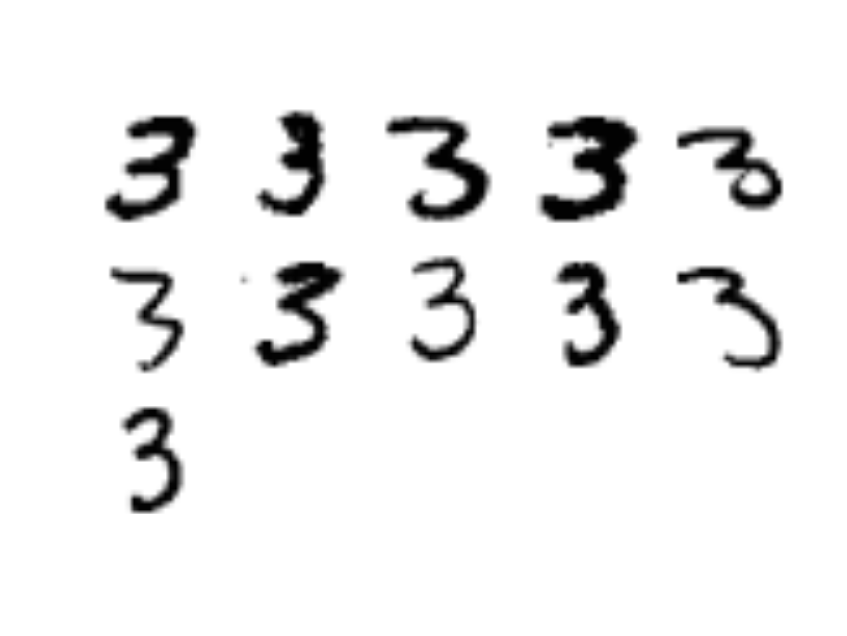 3 3 3 3 3
3 3 3 3 3
3